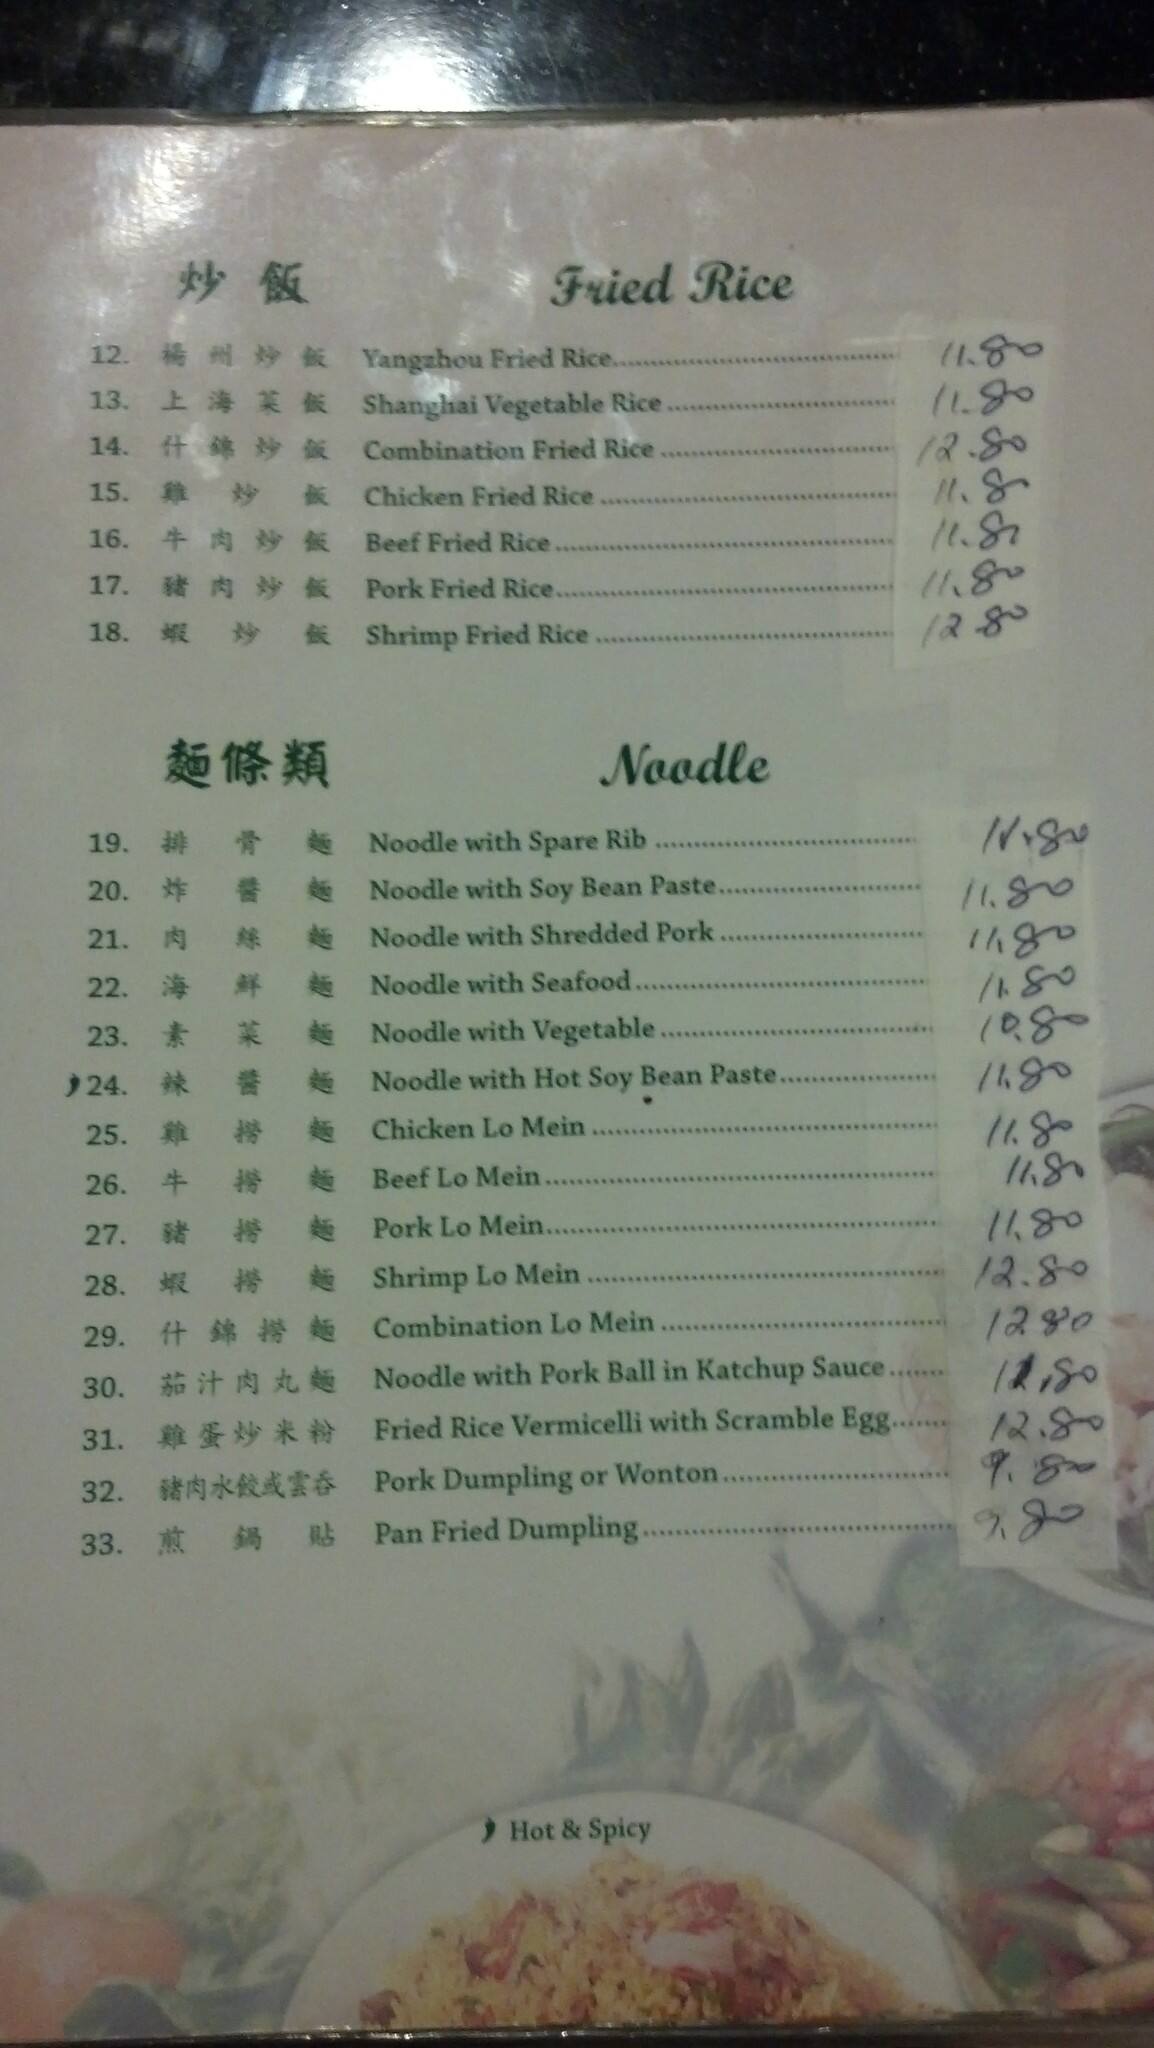 炒飯 Fried Rice
12. 楊州炒飯 Yangzhou Fried Rice 11.80
13. 上海菜飯 Shanghai Vegetable Rice 11.80
14. 什錦炒飯 Combination Fried Rice 12.80
15. 雞炒飯 Chicken Fried Rice 11.80
16. 牛肉炒飯 Beef Fried Rice 11.80
17. 豬肉炒飯 Pork Fried Rice 11.80
18. 蝦炒飯 Shrimp Fried Rice 12.80
麵條類 Noodle
19. 排骨麵 Noodle with Spare Rib 11.80
20. 炸醬麵 Noodle with Soy Bean Paste 11.80
21. 肉絲麵 Noodle with Shredded Pork 11.80
22. 海鮮麵 Noodle with Seafood 11.80
23. 素菜麵 Noodle with Vegetable 10.80
24. 辣醬麵 Noodle with Hot Soy Bean Paste 11.80
25. 雞撈麵 Chicken Lo Mein 11.80
26. 牛撈麵 Beef Lo Mein 11.80
27. 豬撈麵 Pork Lo Mein 11.80
28. 蝦撈麵 Shrimp Lo Mein 12.80
29. 什錦撈麵 Combination Lo Mein 12.80
30. 茄汁肉丸麵 Noodle with Pork Ball in Katchup Sauce
31. 雞蛋炒米粉 Fried Rice Vermicelli with Scramble Egg 12.80
32. 豬肉水餃或雲吞 Pork Dumpling or Wonton 9.80
33. 煎鍋貼 Pan Fried Dumpling 9.80
Hot & Spicy